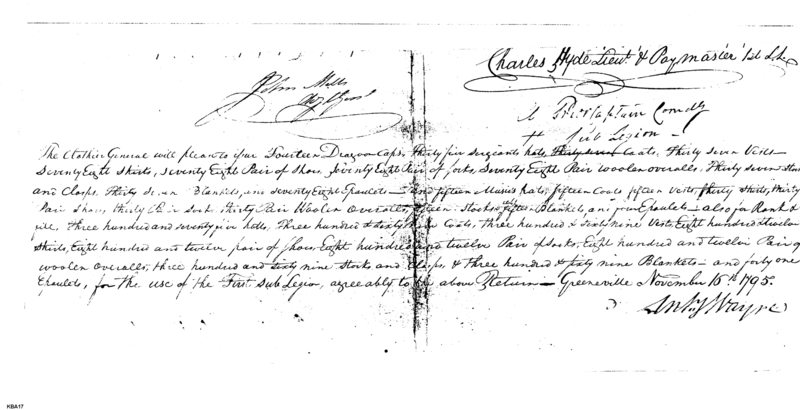 Charles Hyde Lieut & Paymaster 1st S.L.
John Mills
Captain Comdg
Sub Legion
The Clothier General will please to issue Fourteen Dragoon Caps, Thirty five sergeants hats, Thirty seven Coats, Thirty seven Vests
Seventy Eight Shirts, seventy Eight Pair of Shoes, Seventy Eight Pair of socks, Seventy Eight Pair woolen overalls, Thirty seven Stocks
and Clasps, Thirty Seven Blankets, and seventy Eight Epaulets and fifteen Musics hats, fifteen Coats fifteen Vests, Thirty shirts, thirty
Pair Shoes, thirty Pair Socks Thirty Pair Woolen Overalls, Stocks Blankets, and four Epaulets also for Rank &
file, Three hundred and seventy five hatts, Three hundred & sixty Coats, three hundred & sixty nine Vests, Eight hundred & twelve
Shirts, Eight hundred and twelve pair of Shoes, Eight hundred and twelve Pair of Socks, Eight hundred and twelve Pair of
woolen overalls, three hundred and sixty nine Stocks and Clasps, & Three hundred & sixty nine Blankets and forty one
Epaulets, for the use of the First Sub Legion, agreeably to the above Return Greeneville November 16th 1795.
Anty Wayne
KBA17